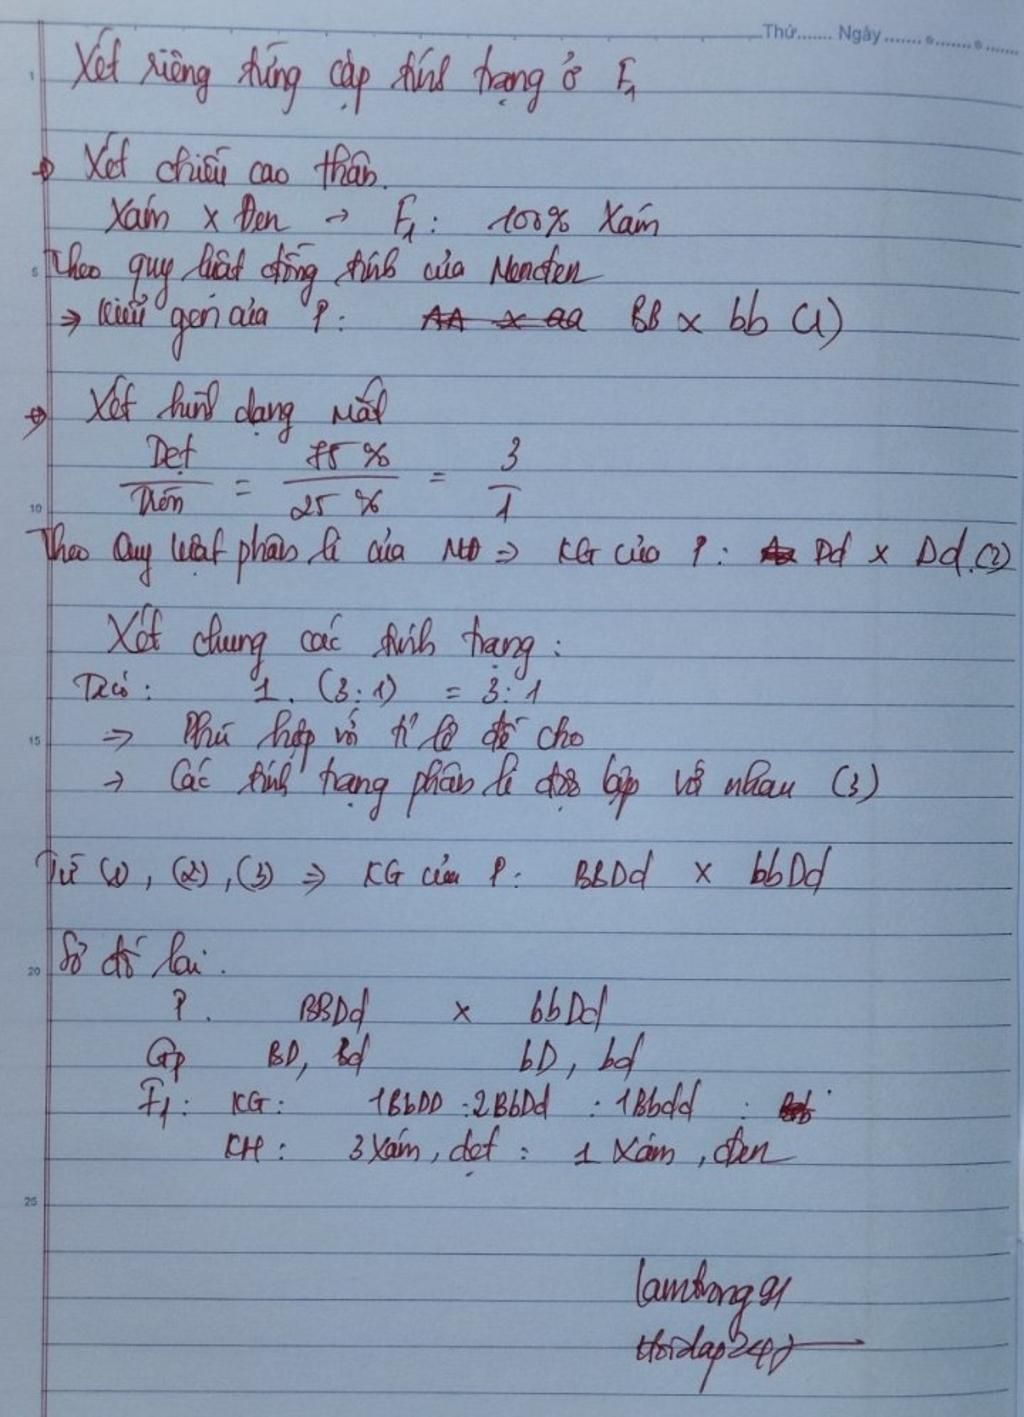 Thứ....... Ngày.......
Xét riêng từng cặp tính trạng ở F1
Xét chiều cao thân.
Xám x Đen → F1: 100% Xám
Theo quy luật đồng tính của Menđen
⇒ Kiểu gen của P: AA x aa BB x bb (1)
Xét hình dạng mắt
Dẹt / Tròn = 75 % / 25 % = 3 / 1
Theo Quy luật phân li của MĐ ⇒ KG của P: Dd x Dd (2)
Xét chung các tính trạng:
Ta có: 1. (3:1) = 3:1
⇒ Phù hợp với tỉ lệ đề cho
→ Các tính trạng phân li độc lập với nhau (3)
Từ (1), (2), (3) ⇒ KG của P: BBDd x bbDd
Sơ đồ lai.
P. BBDd x bbDd
Gp BD, Bd bD, bd
F1: KG: 1BbDD : 2BbDd : 1Bbdd :
KH: 3 Xám, dẹt : 1 Xám, đen
lamtrong91
Hoidap247
1
5
10
15
20
25